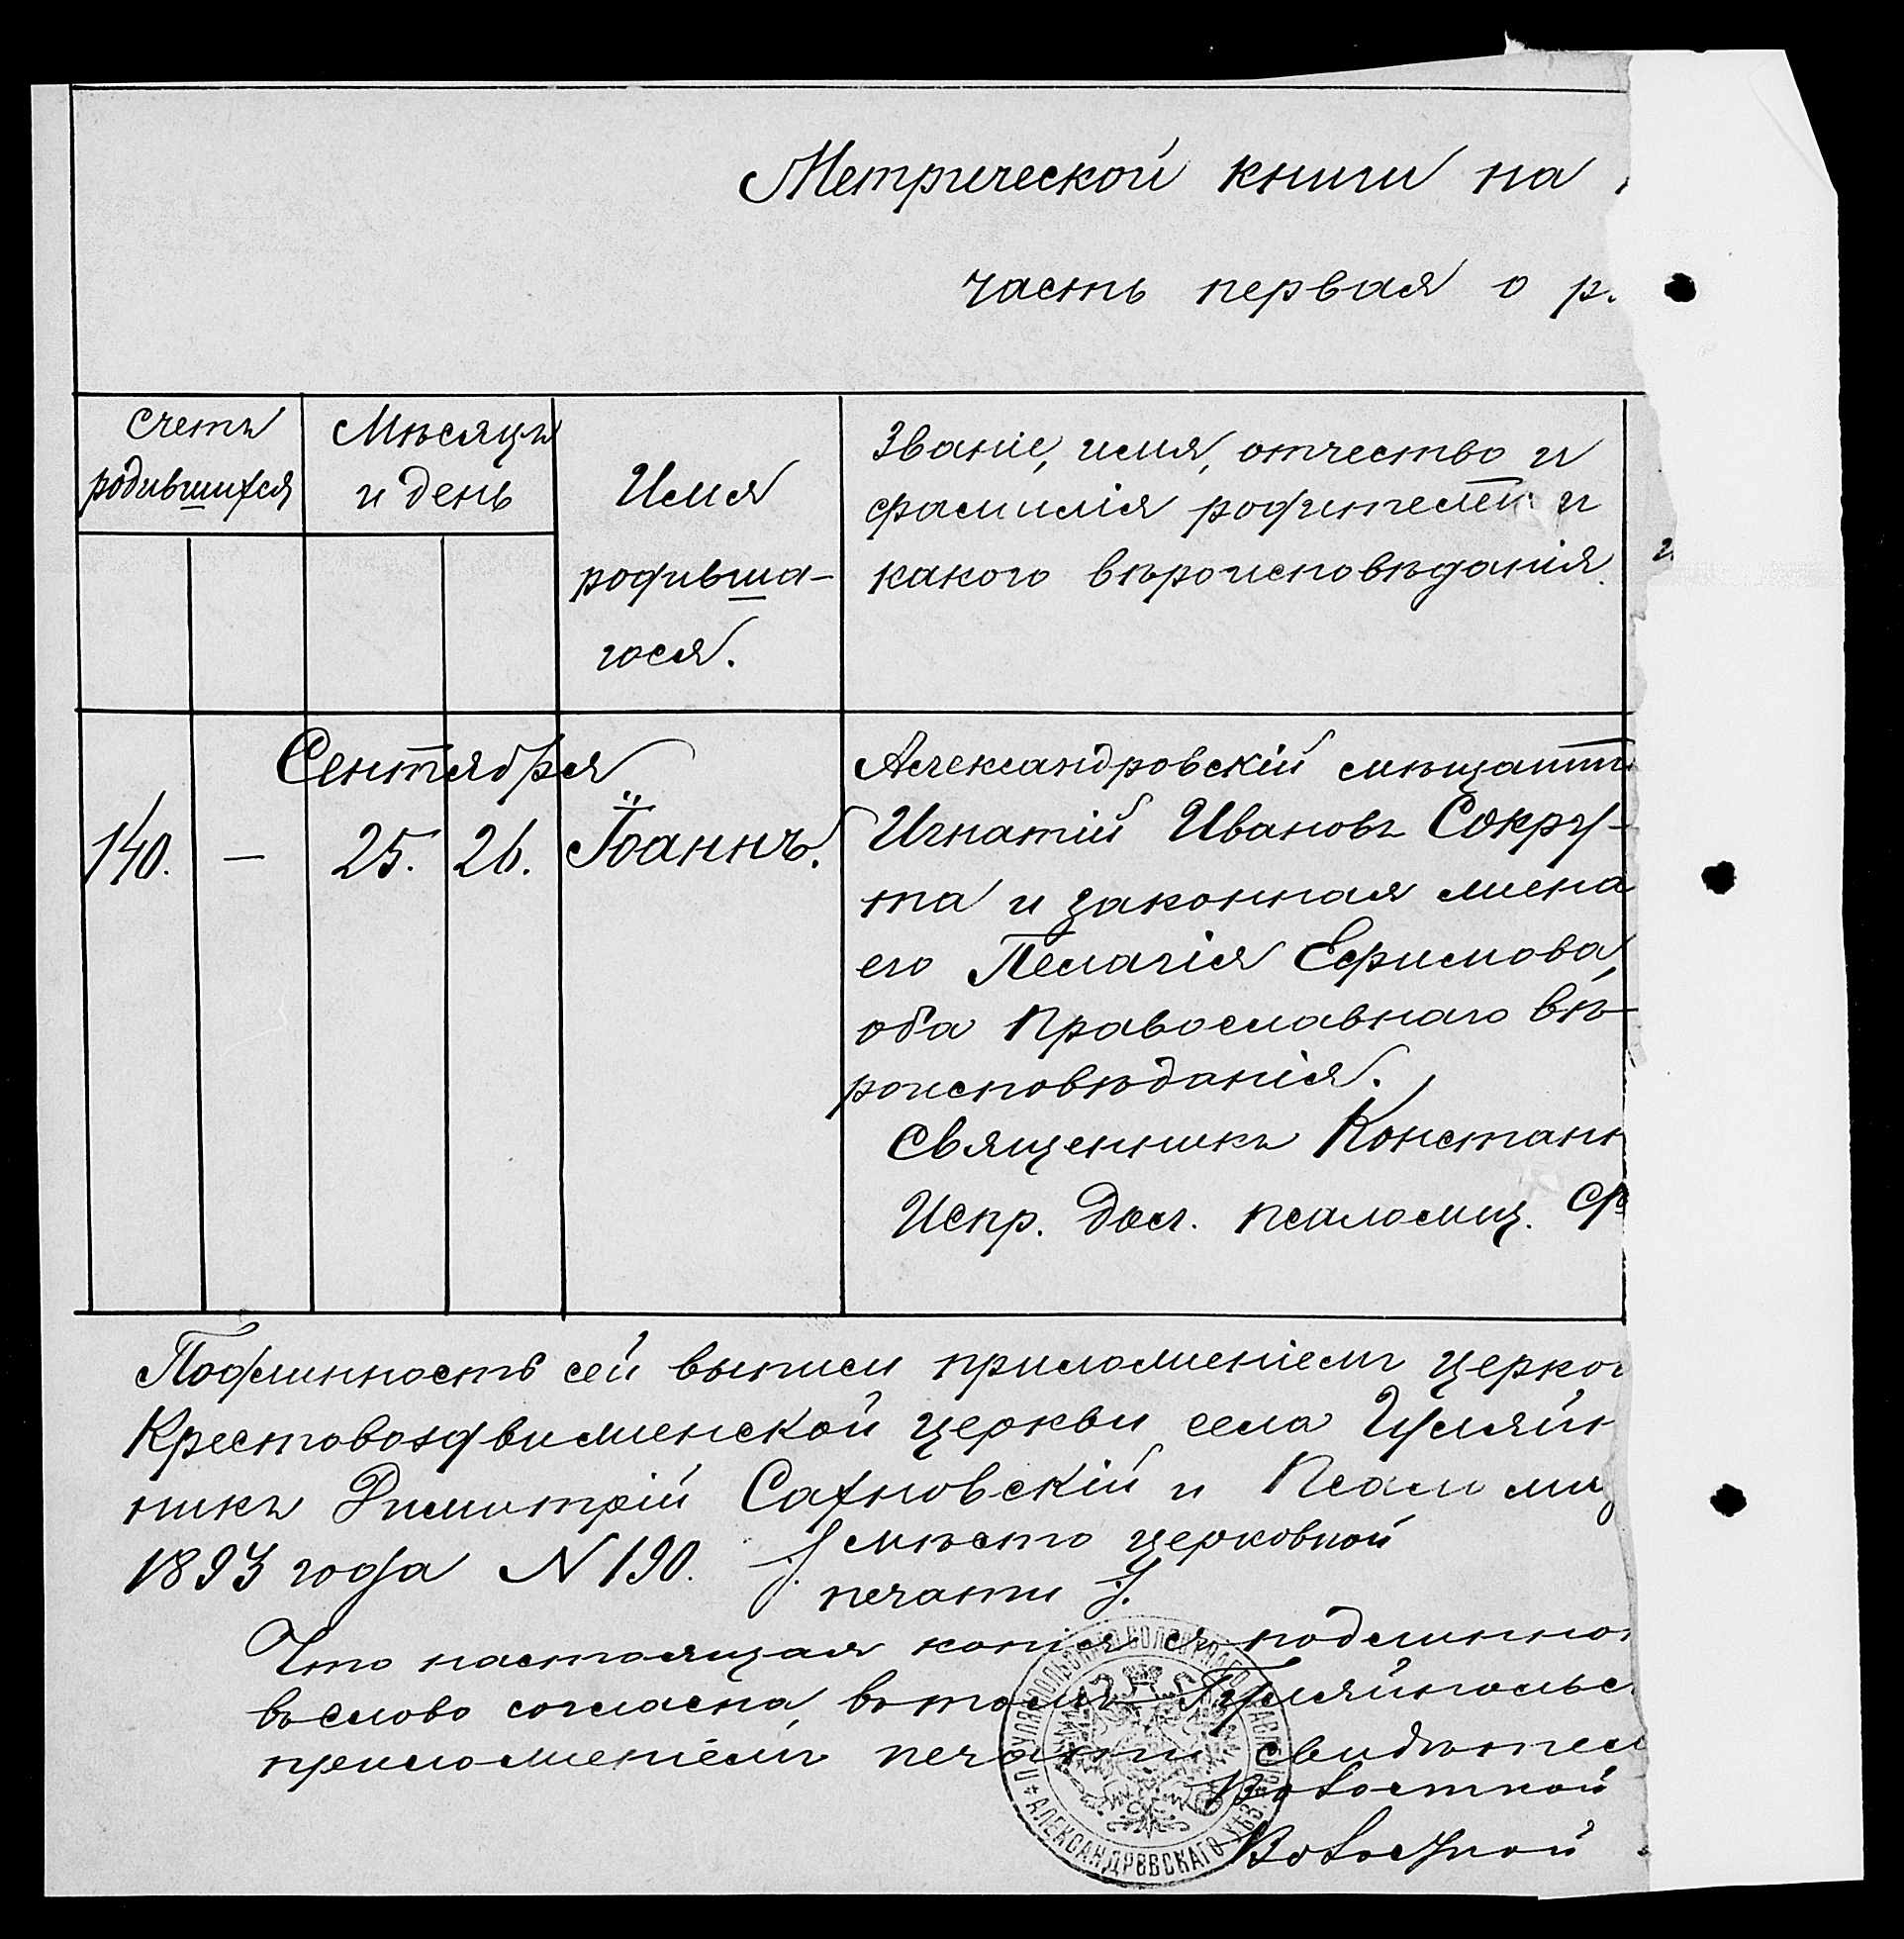 Метрической книги на
часть первая о р.
Счетъ родившихся
Мѣсяцъ и день
Имя родившагося.
Званіе, имя, отчество и
фамилія родителей и
какого вѣроисповѣданія.
Сентября
140. — 25. 26. Іоаннъ.
Александровскій мѣщанинъ
Игнатій Ивановъ Сокру-
та и законная жена
его Пелагія Ефимова,
оба православнаго вѣ-
роисповѣданія.
Священникъ Констан
Испр. дол. псаломщ.
Подлинность сей выписи приложеніемъ церко
Крестовоздвиженской церкви села Гуляйп
никъ Димитрій Сахновскій и Псаломщ
1893 года N 190. /: мѣсто церковной
печати :/
Что настоящая копія съ подлинно
въ слово согласна, въ томъ Гуляйпольс
приложеніемъ печати свидѣтел
Волостной
Волостной
ГУЛЯЙПОЛЬСКАГО ВОЛОСТНАГО ПРАВЛЕНІЯ
АЛЕКСАНДРОВСКАГО УѢЗ.